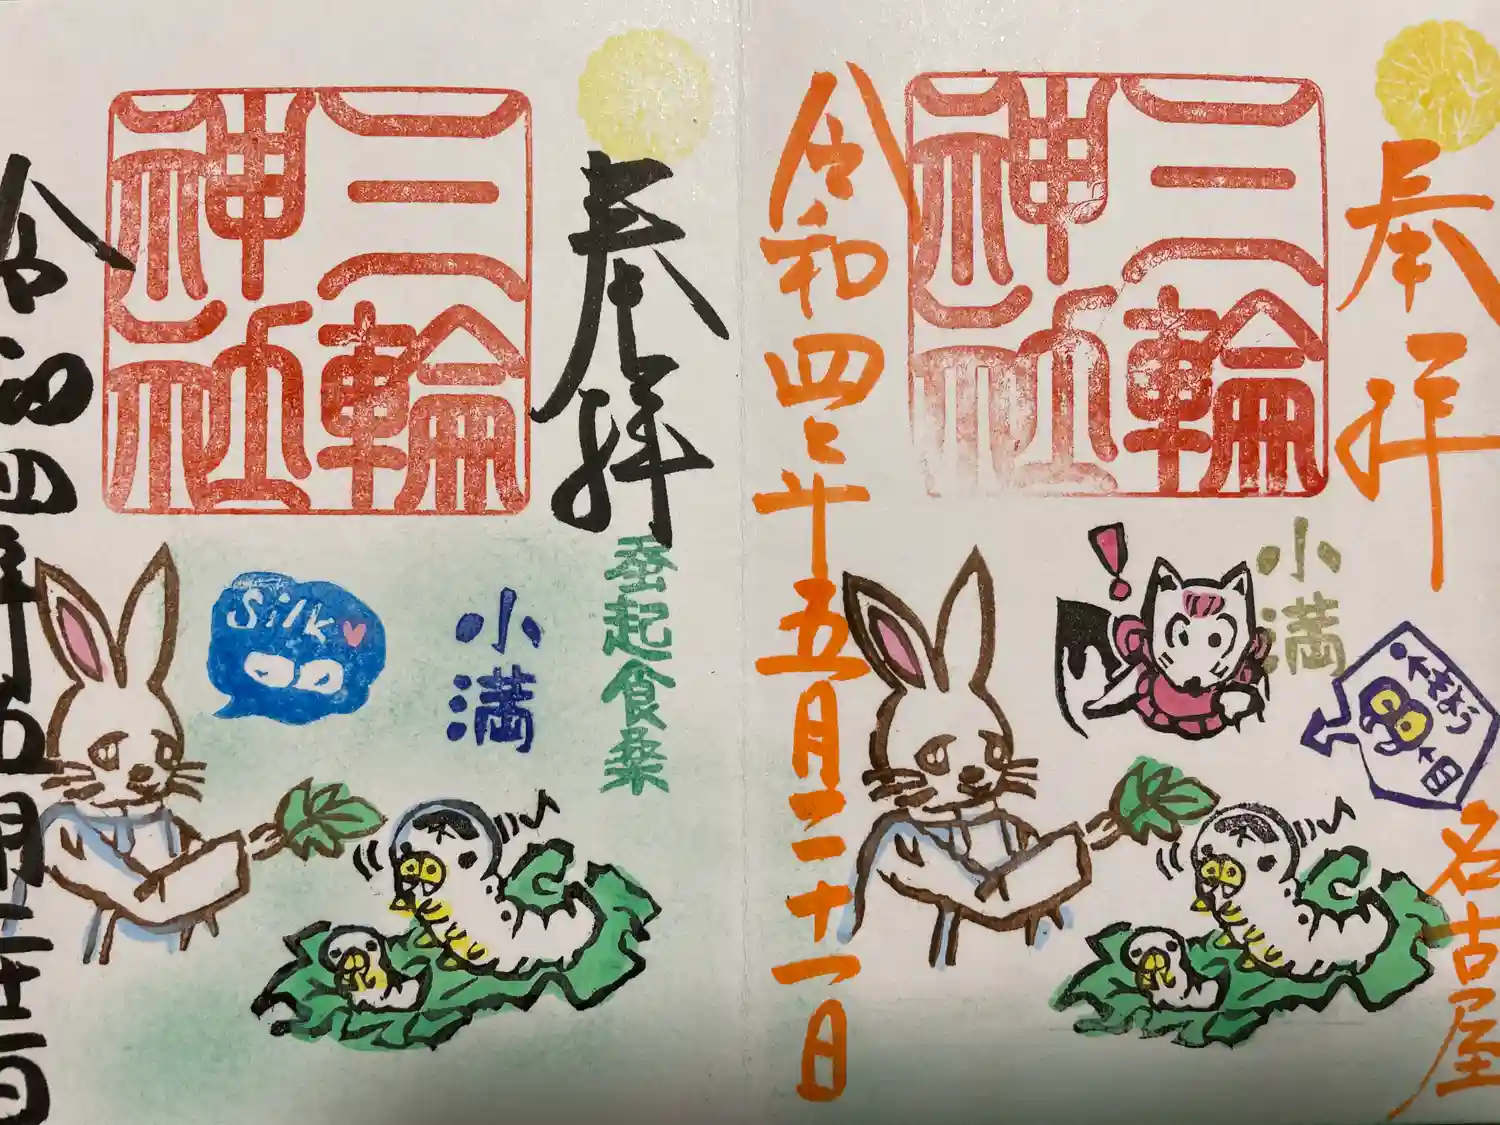 奉拝
名古屋
小満
三輪
神社
令和四年五月二十一日
奉拝
蚕起食桑
小満
三輪
神社
Silk
令和四年五月